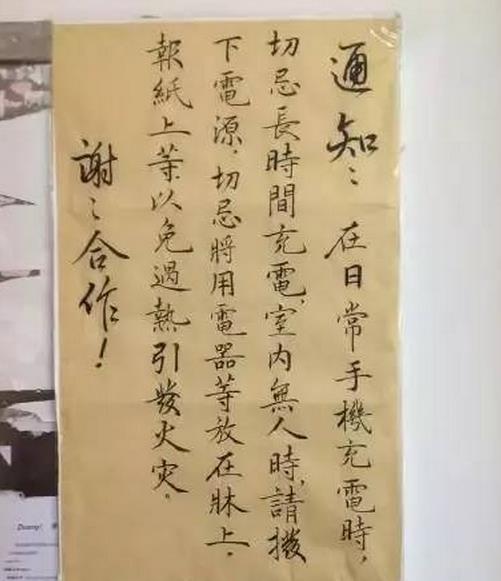 通知：在日常手機充電時，
切忌長時間充電，室內無人時，請撥
下電源，切忌將用電器等放在牀上，
報紙上等以免過熱引發火灾。
謝〻合作！
Doang!